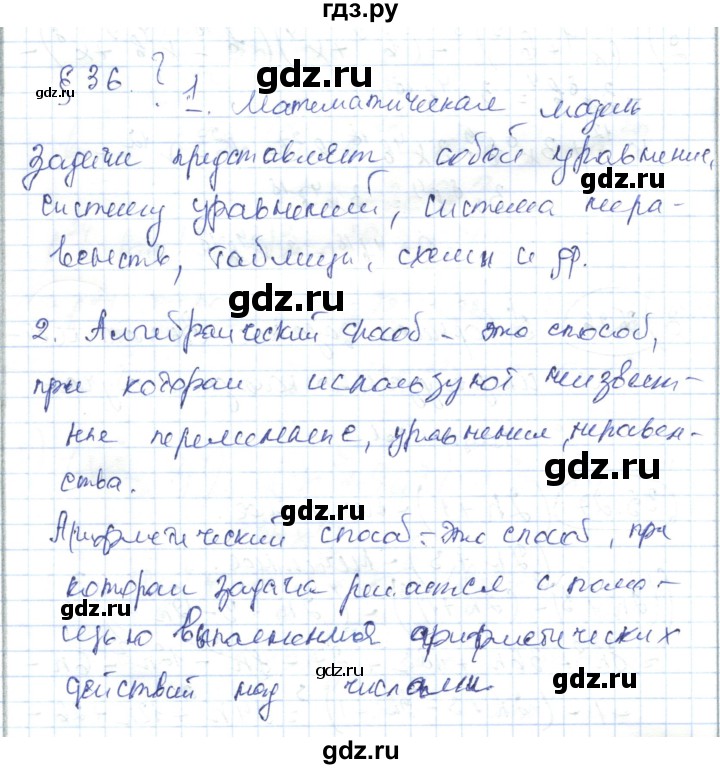 гдз.ру
§ 36. ? 1. Математическая модель
задачи представляет собой уравнение,
систему уравнений, система нера-
венств, таблицы, схемы и др.
2. Алгебраический способ - это способ,
при котором используют неизвест-
ные переменные, уравнения, неравен-
ства.
Арифметический способ - это способ, при
котором задача решается с помо-
щью выполнения арифметических
действий над числами.
gdz.ru
gdz.ru
gdz.ru
gdz.ru
gdz.ru
gdz.ru
gdz.ru
gdz.ru
gdz.ru
gdz.ru
gdz.ru
gdz.ru